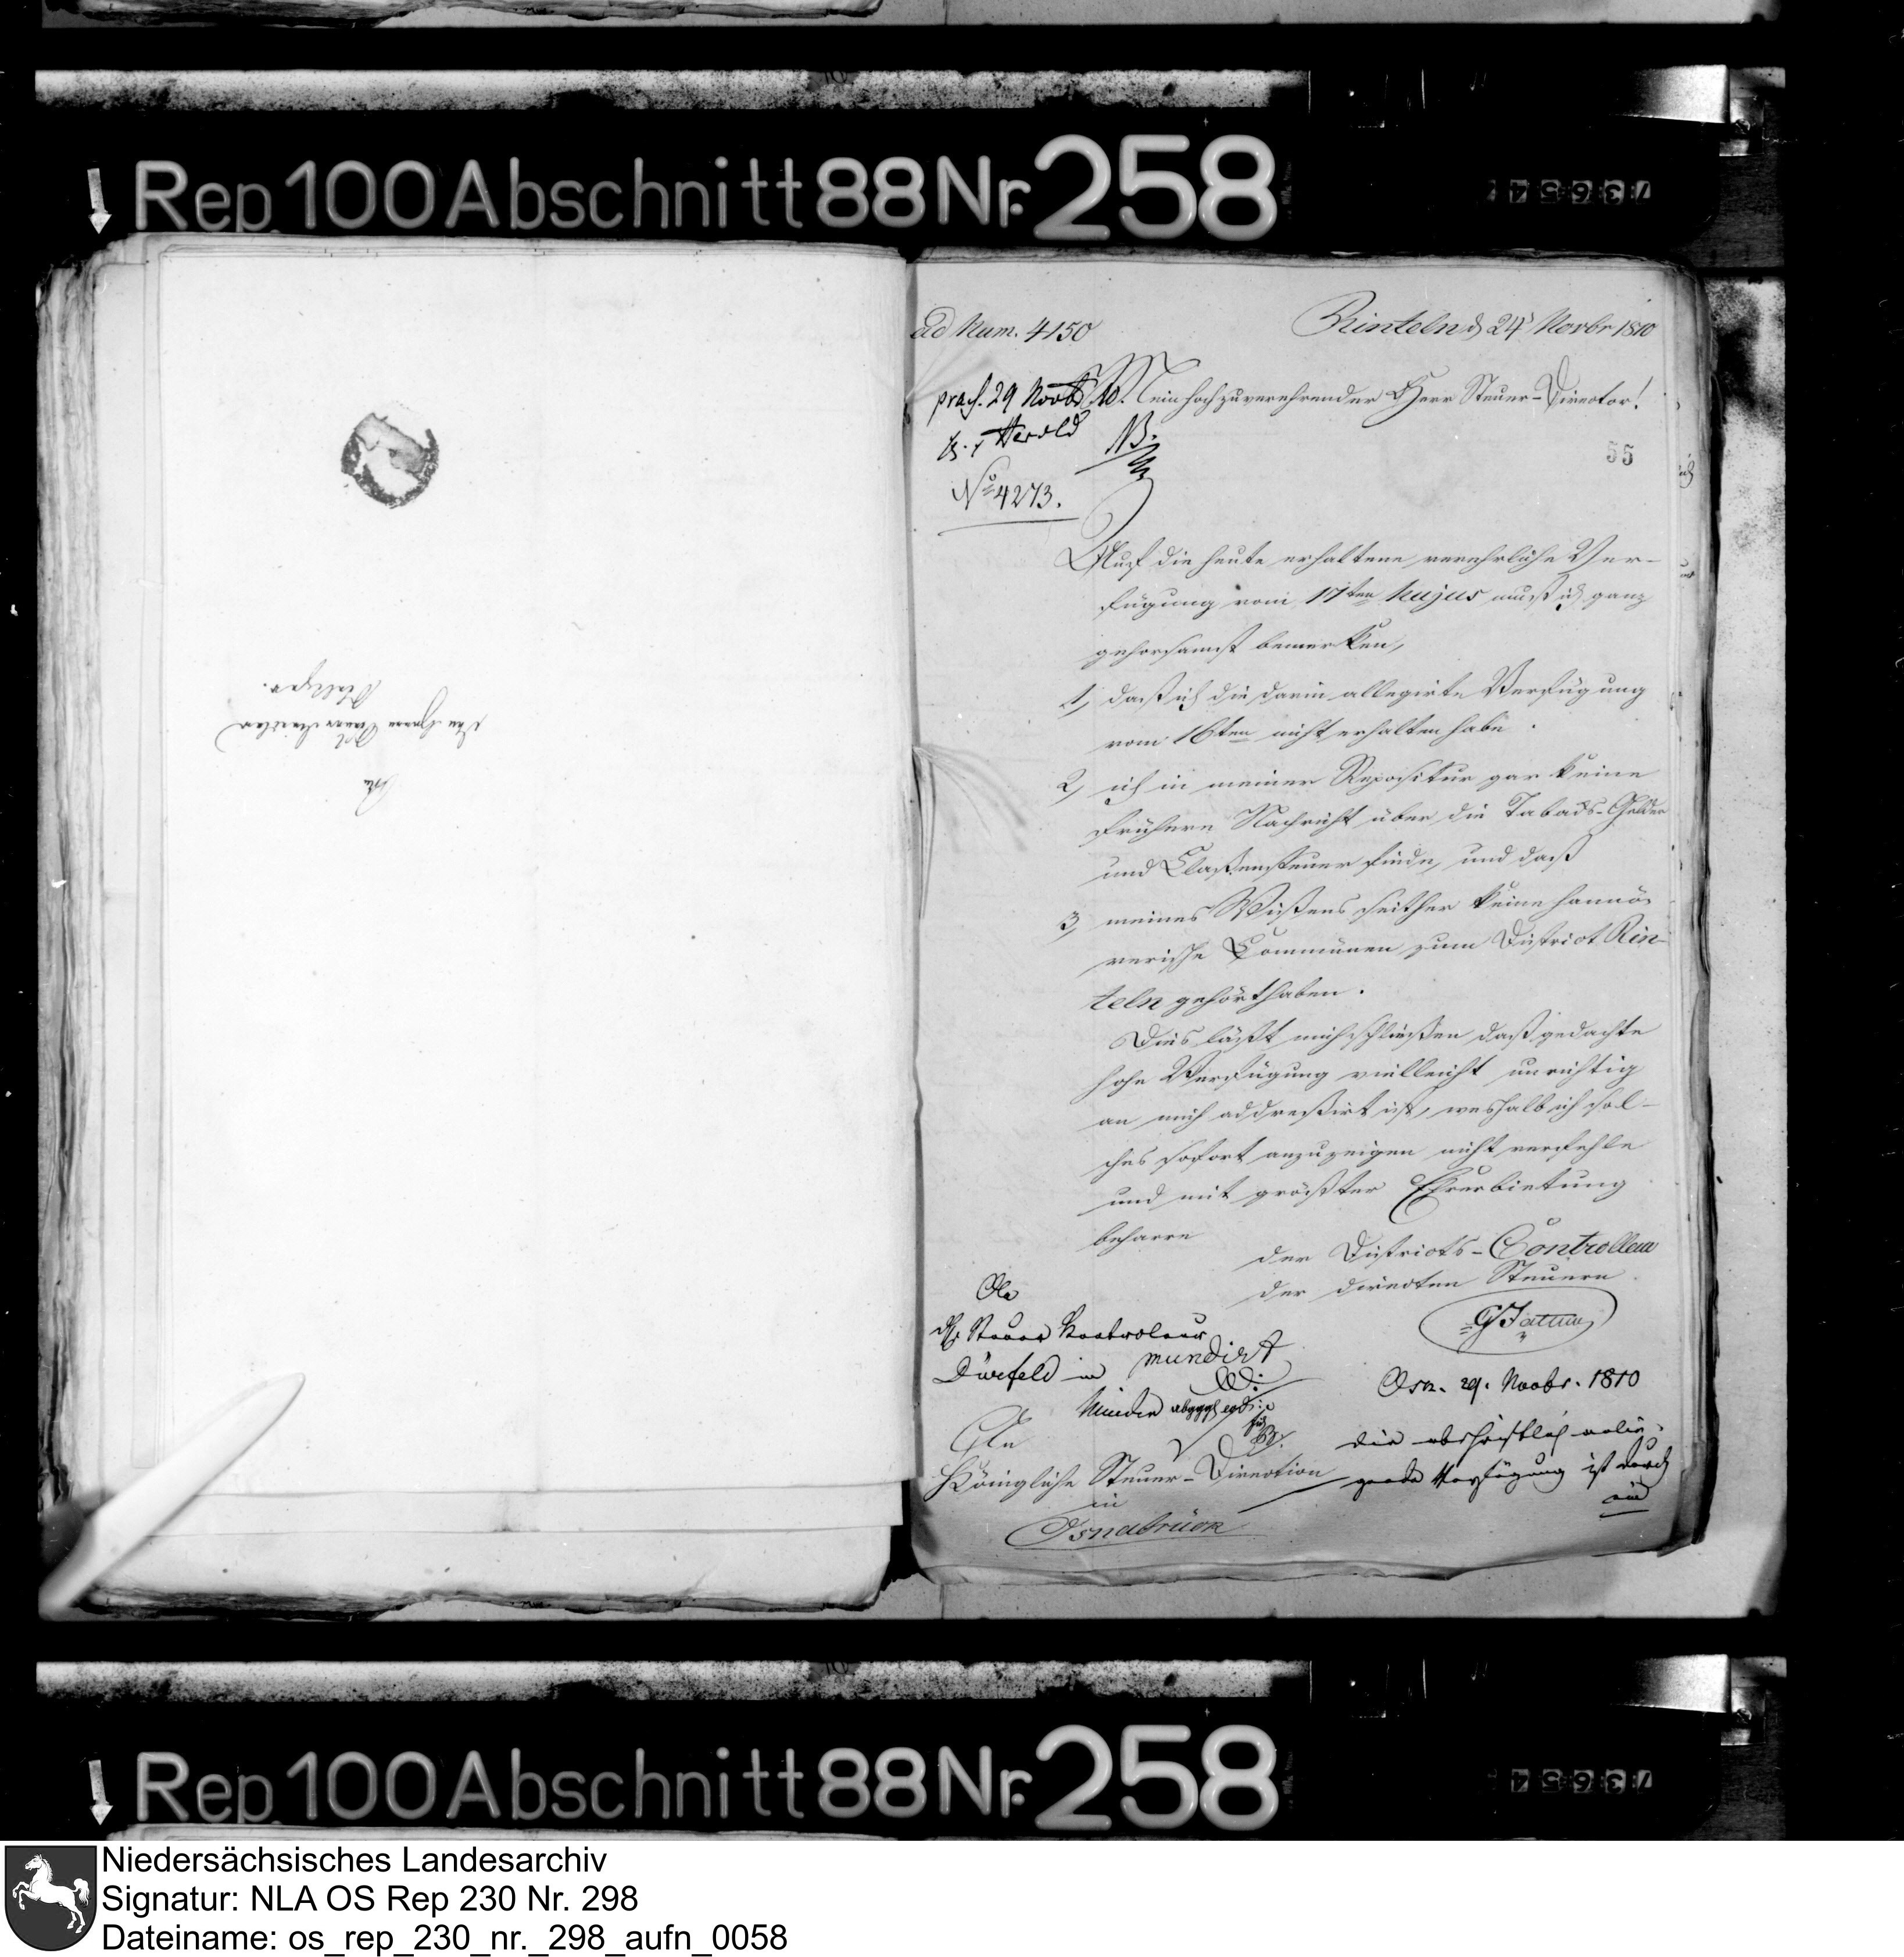 Rep. 100 Abschnitt 88 Nr. 258
An
den Herrn Steuer Director
ad Num. 4150
Rinteln d 24 Novbr 1810
praes. 29 Novbr 10.
Mein hochzuverehrender Herr Steuer-Director!
Herold
NB.
55
No 4273.
Auf die heute erhaltene verehrliche Ver-
fügung vom 17ten hujus muß ich ganz
gehorsamst bemerken,
1, daß ich die darin allegirte Verfügung
vom 16ten nicht erhalten habe.
2, ich in meiner Repositur gar keine
frühere Nachricht über die Tabacks-Gelder
und Claßensteuer finde, und daß
3, meines Wißens seither keine hannö-
verische Communen zum District Rin-
teln gehört haben.
Dies läßt mich schließen daß gedachte
hohe Verfügung vielleicht unrichtig
an mich addreßirt ist, weshalb ich sol-
ches sofort anzuzeigen nicht verfehle
und mit größter Ehrerbietung
beharre
der Districts-Controlleur
der directen Steuern
An
H. Steuer Kontroleur
Dürfeld in
mundirt
Minden
Osn. 29. Novbr. 1810
An
Königliche Steuer-Direction
in
Osnabrück
die abschriftlich anlie-
gende Verfügung ist durch
ein
Rep. 100 Abschnitt 88 Nr. 258
Niedersächsisches Landesarchiv
Signatur: NLA OS Rep 230 Nr. 298
Dateiname: os_rep_230_nr._298_aufn_0058